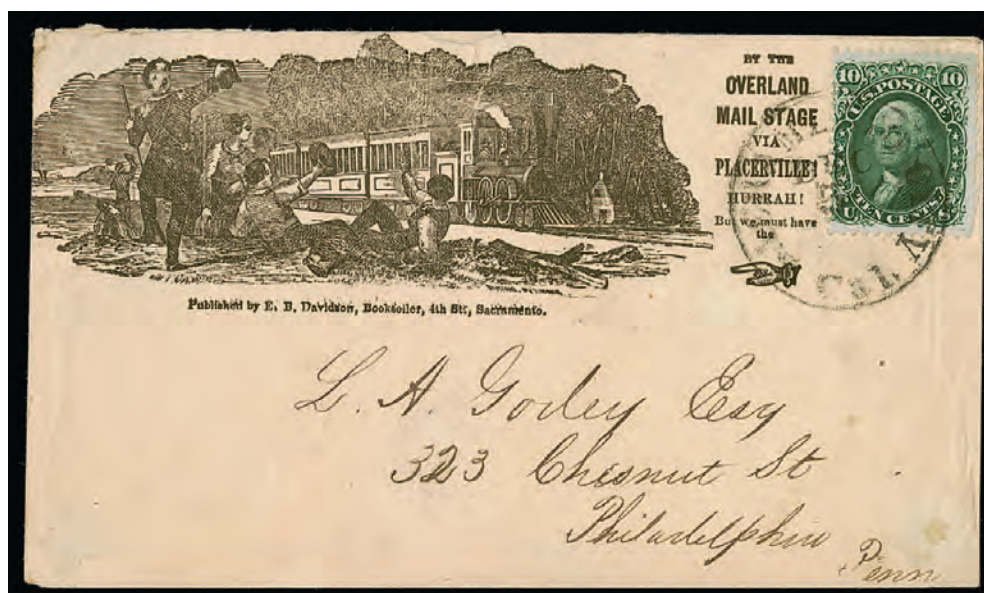 BY THE
OVERLAND
MAIL STAGE
VIA
PLACERVILLE!
HURRAH!
But we must have
the
10 10
U.S. POSTAGE
TEN CENTS.
U S
Cal.
Published by E. B. Davidson, Bookseller, 4th Str, Sacramento.
L. A. Godey Esq
323 Chesnut St
Philadelphia
Penn